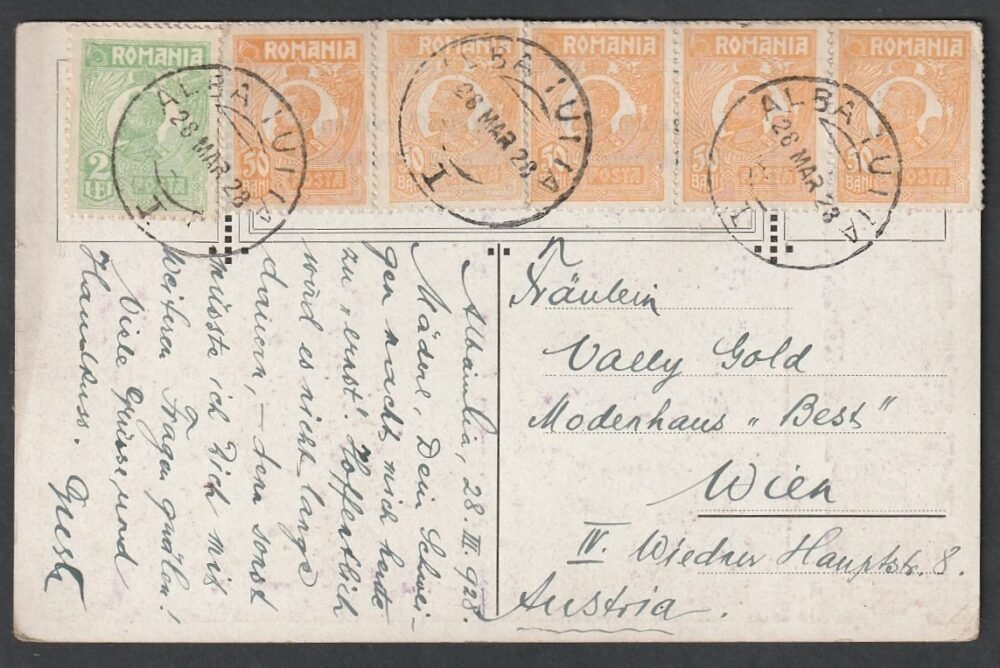 ROMANIA ROMANIA ROMANIA ROMANIA ROMANIA ROMANIA
2 LEI POSTA
50 BANI POSTA
50 BANI POSTA
50 BANI POSTA
50 BANI POSTA
50 BANI POSTA
ALBA IULIA
28 MAR 28
ALBA IULIA
28 MAR 28
ALBA IULIA
28 MAR 28
Albaiulia, 28. III. 928.
Mäderl, Dein Schwei-
gen macht mich heute
zu „ernst". Hoffentlich
wird es nicht lange
dauern, – denn sonst
müsste ich Dich mit
weiteren Fragen quälen!
Viele Grüsse und
Handkuss.
Fräulein
Vally Gold
Modenhaus „Best"
Wien
IV. Wiedner Hauptstr. 8.
Austria.